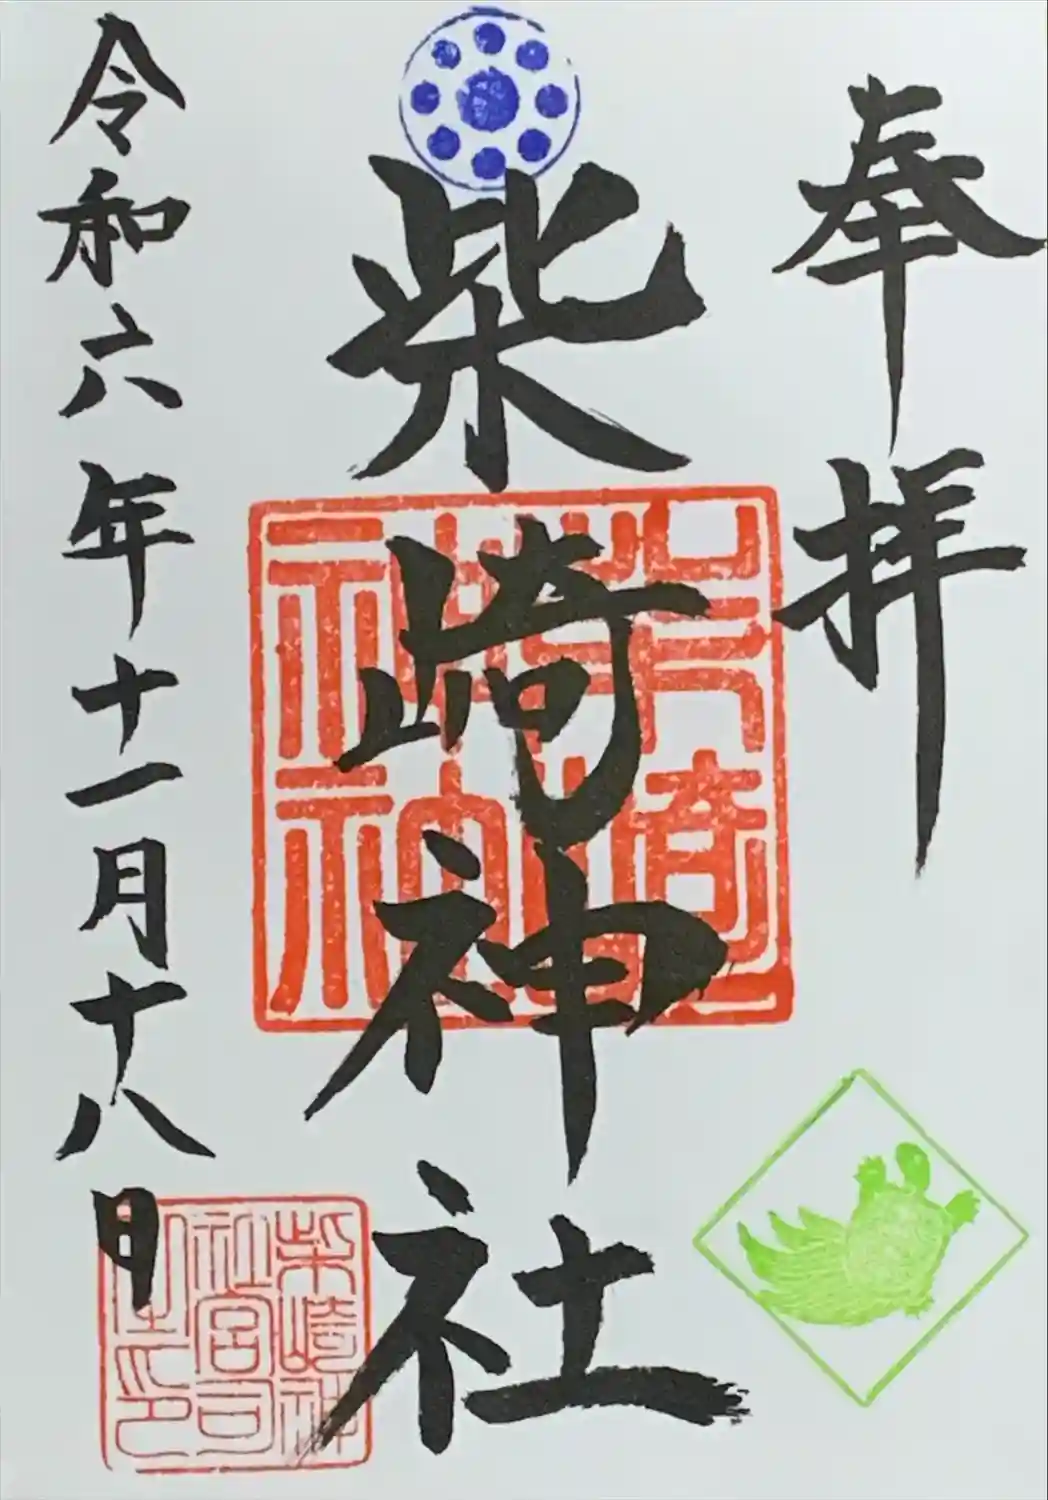 奉拝
柴崎神社
柴崎神社
令和六年十一月十八日
柴崎神
社宮司
之印